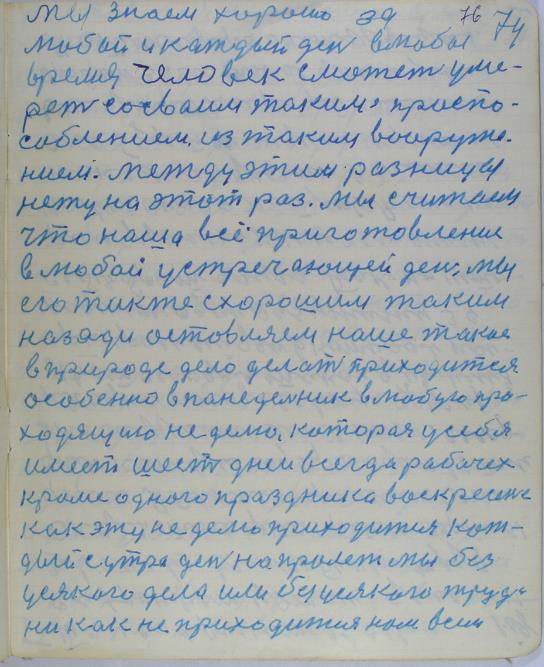 мы знаем хорошо за 76 74
любой и каждый ден в любы
время человек сможет уме-
рет сосваим таким, приспо-
соблением, из таким вооруже-
нием. между этим разницы
нету на этот раз. мы считаем
что наша всё приготовление
в любой устречающей ден, мы
его также схорошим таким
назади остовляем наше такое
в природе дело делат приходится
особенно впанедельник в любую про-
ходящую неделю, которая усебя
имеет шест дней всегда рабачех
кроме одного праздника воскресение
как эту неделю приходится кож-
дый сутра ден напролет мы без
усякого дела или безусякого труда
никак не приходится нам всем